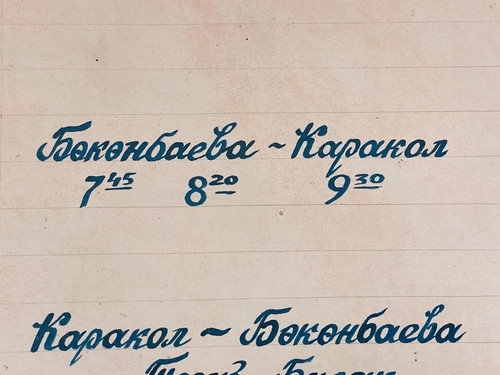 Бөкөнбаева ~ Каракол
7 45 8 20 9 30
Каракол ~ Бөкөнбаева